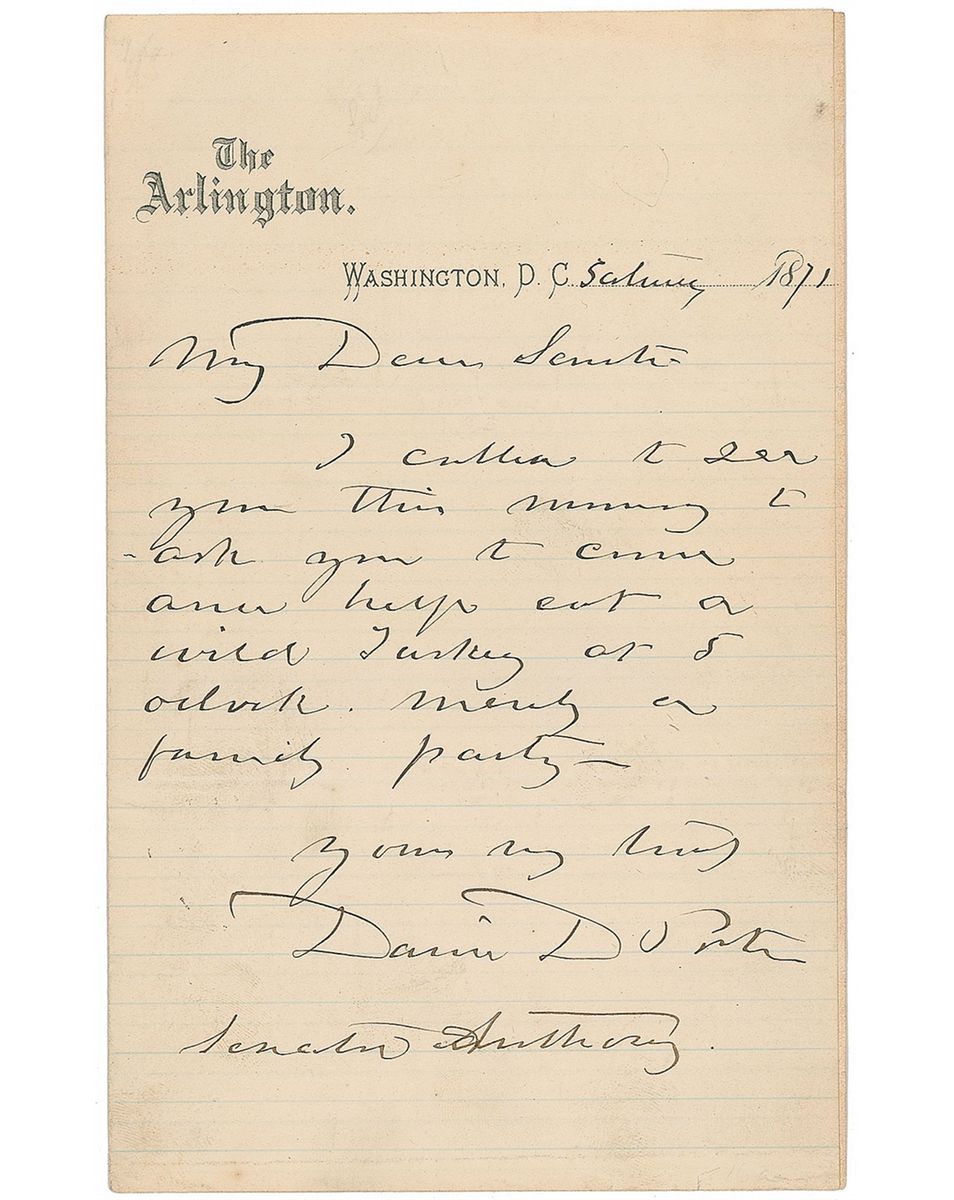 The
Arlington.
WASHINGTON, D. C. Saturday 1871
My Dear Senator
I called to see
you this morning to
ask you to come
and help eat a
wild Turkey at 5
oclock. Merely a
family party—
yours very truly
David D Porter
Senator Anthony.